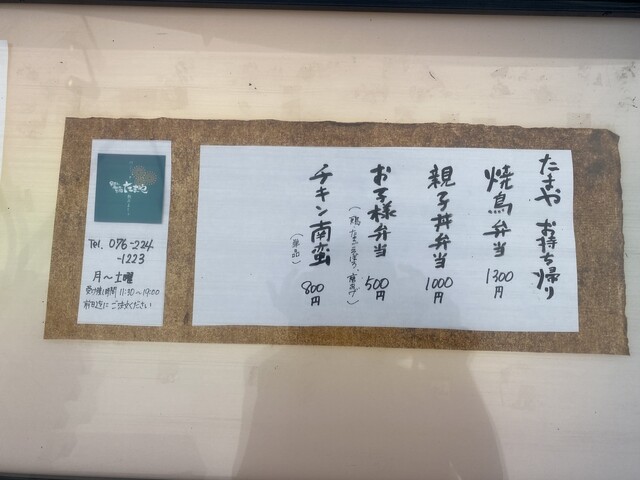 たまや お持ち帰り
焼鳥弁当 1300円
親子丼弁当 1000円
お子様弁当 500円
チキン南蛮 800円
(単品)
Tel. 076-224
-1223
月〜土曜
受け渡し時間 11:30〜19:00
前日迄にご注文ください